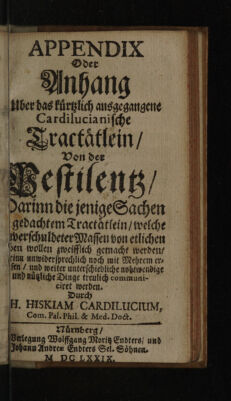 APPENDIX
Oder
Anhang
Uber das kürtzlich ausgegangene
Cardilucianische
Tractätlein/
Von der
Pestilentz/
Darinn die jenige Sachen
gedachtem Tractätlein/welche
verschuldeter Massen von etlichen
wollen zweifflich gemacht werden/
unwidersprechlich noch mit Mehrem er-
sen/ und weiter unterschiedliche nohtwendige
und nützliche Dinge treulich communi-
ciret werden.
Durch
H. HISKIAM CARDILUCIUM,
Com. Pal. Phil. & Med. Doct.
Nürnberg/
Verlegung Wolffgang Moritz Endters/ und
Johann Andreæ Endters Sel. Söhnen.
M DC LXXIX.